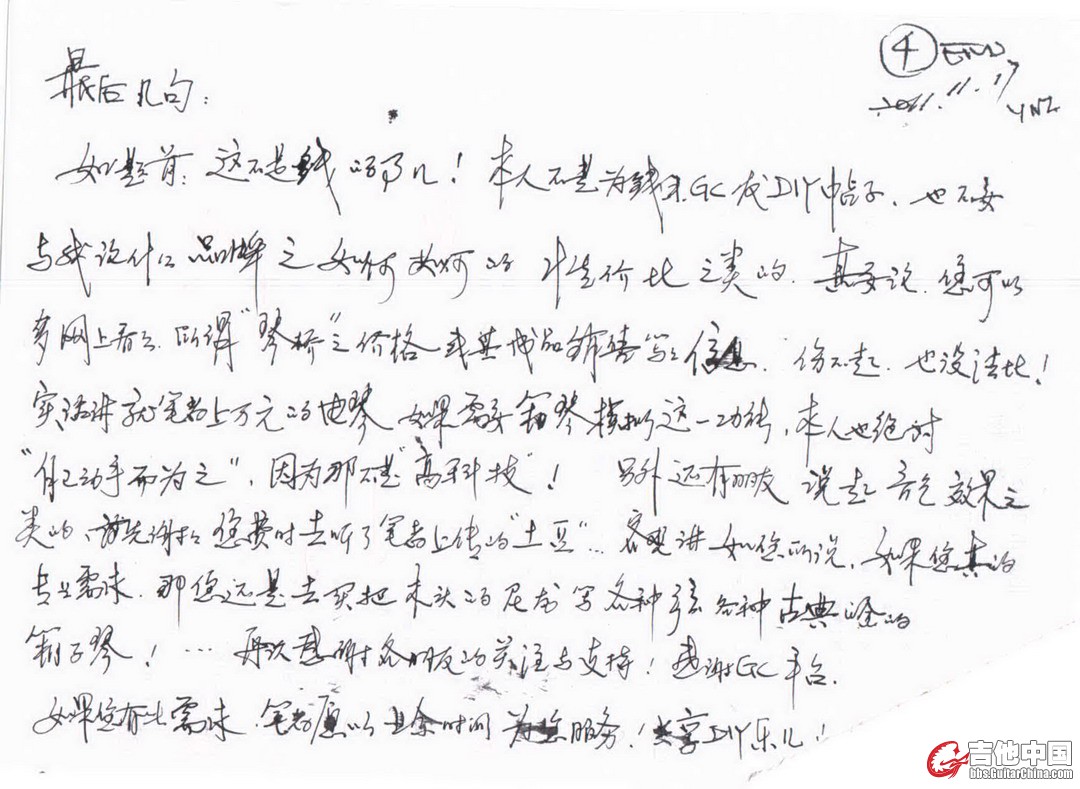 ④ END
2011.11.17
YNZ
最后几句：
如题前：这不是钱的事儿！本人不是为钱来GC发DIY中帖子，也不要
与我说什么品牌之如何如何的性价比之类的，真要说，您可以
多网上看看，所谓“琴桥”之价格或其成品销售写之信息，伤不起，也没法比！
实话讲就笔者上万元的电琴如果需要箱琴模拟这一功能，本人也绝对
“自己动手而为之”，因为那不是“高科技”！ 另外还有朋友说起音色效果之
类的，首先谢谢您费时去听了笔者上传的“土豆”…客观讲如您所说，如果您真的
专业需求，那您还是去买把木头的尼龙 各种弦各种古典 的
箱子琴！… 再次感谢各朋友的关注与支持！感谢GC平台．
如果您有此需求，笔者愿以业余时间为您服务！共享DIY乐儿！
吉他中国
bbs.GuitarChina.com